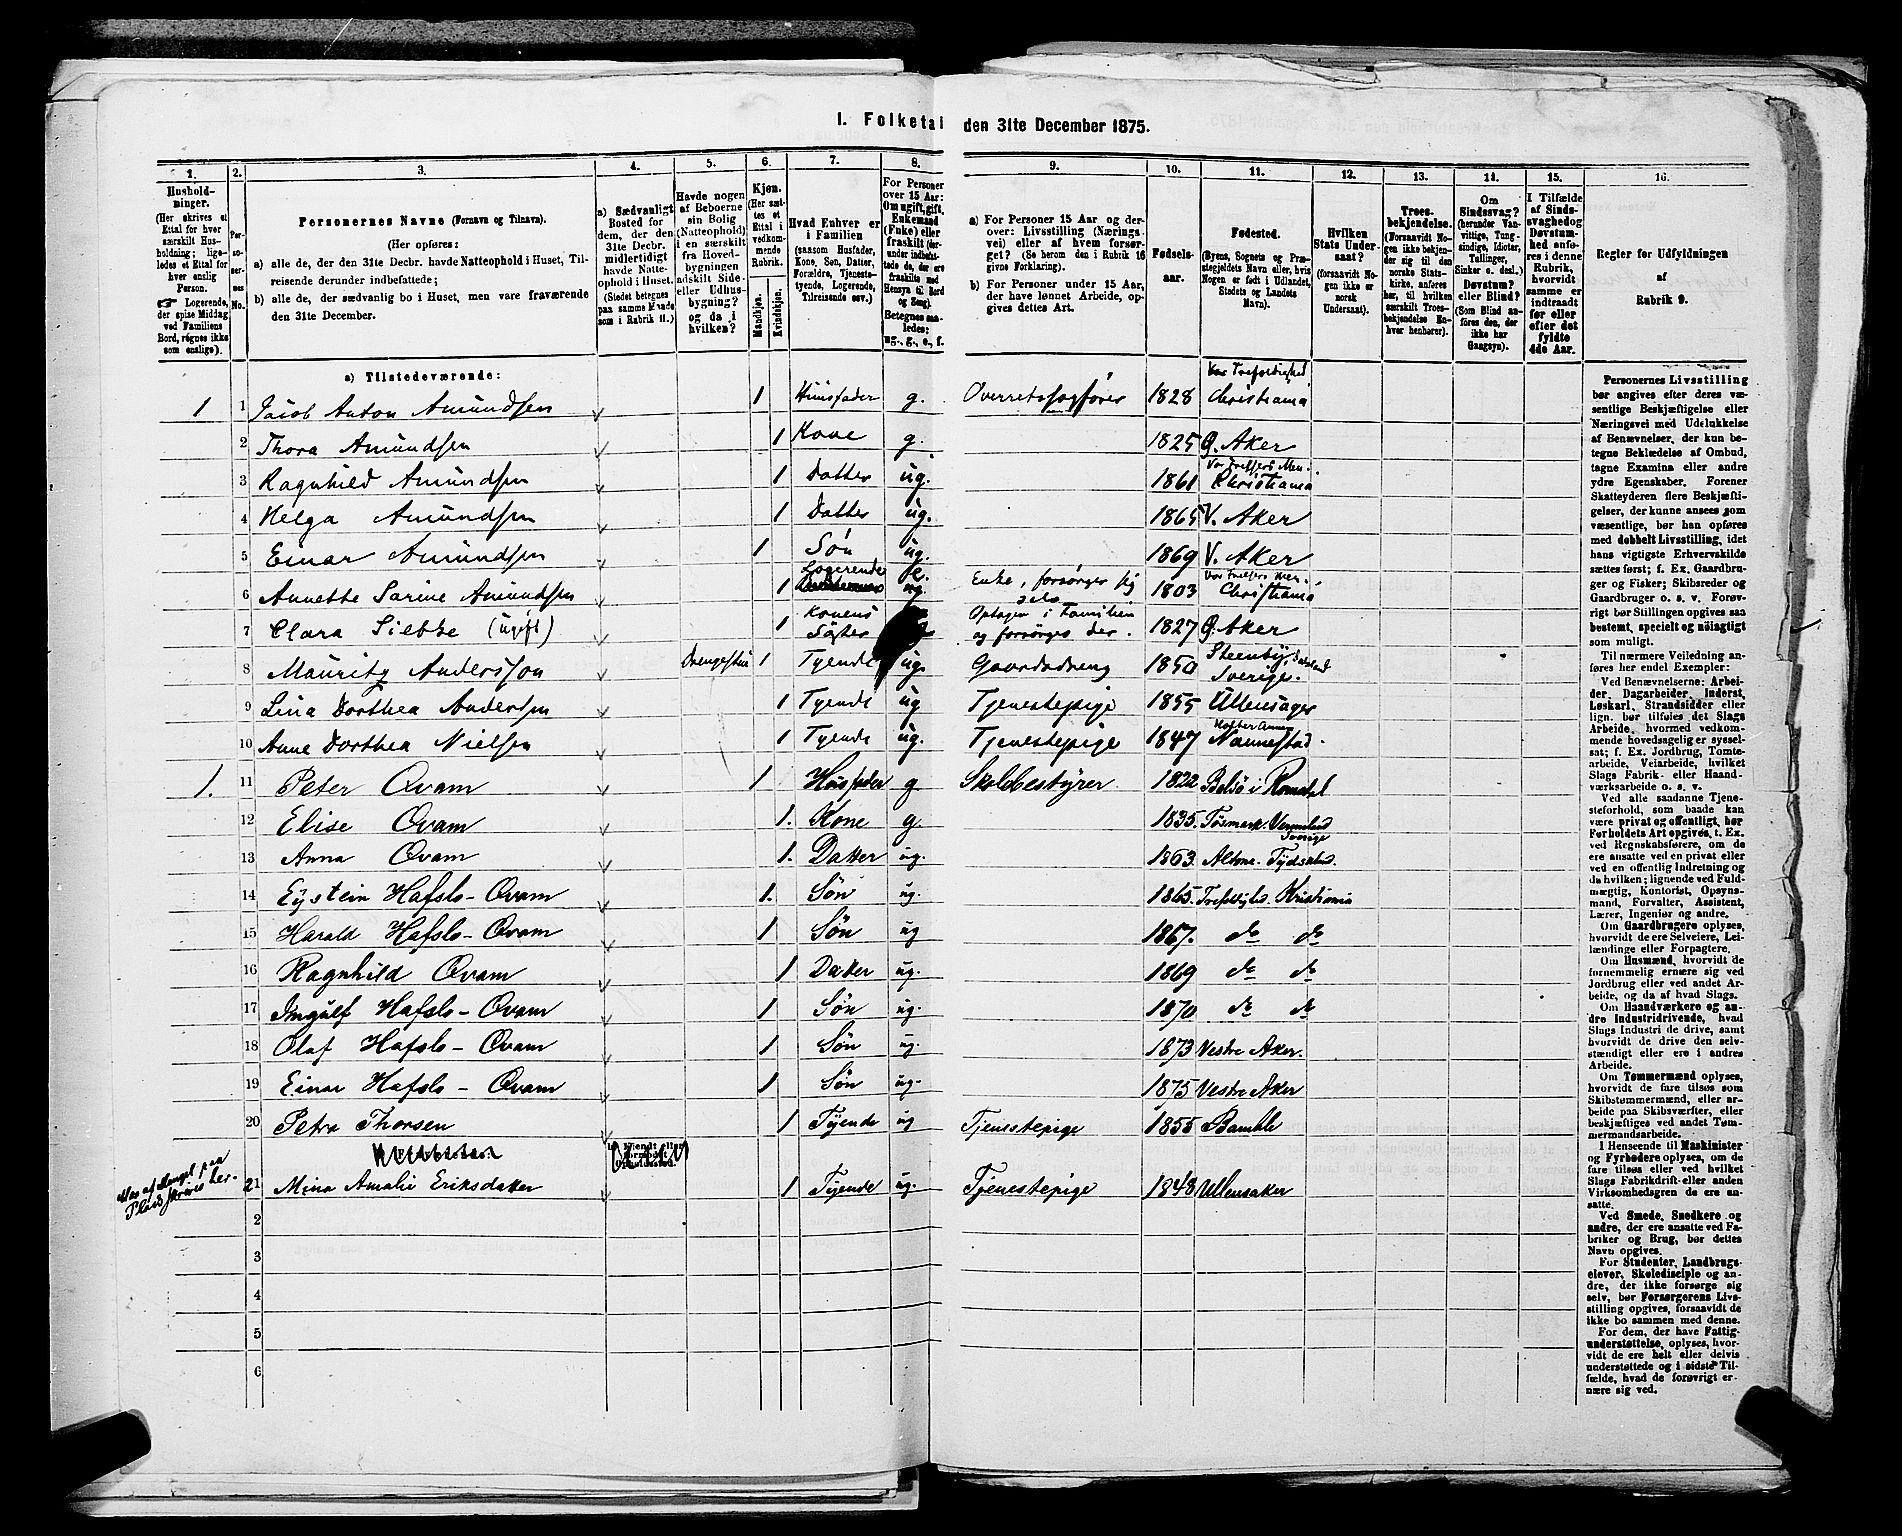 I. Folketal den 31te December 1875.
1. 2. 3. 4. 5. 6. 7. 8. 9. 10. 11. 12. 13. 14. 15. 16.
Hushold-
ninger.
(Her skrives et
Ettal for hver
særskilt Hus-
holdning; lige-
ledes et Ettal for
hver enslig
Person.
☞ Logerende,
der spise Middag
ved Familiens
Bord, regnes ikke
som enslige).
Per-
so-
ner-
nes
No.
Personernes Navne (Fornavn og Tilnavn).
(Her opføres:
a) alle de, der den 31te Decbr. havde Natteophold i Huset, Til-
reisende derunder indbefattede;
b) alle de, der sædvanlig bo i Huset, men vare fraværende
den 31te December.
a) Sædvanligt
Bosted for
dem, der den
31te Decbr.
midlertidigt
havde Natte-
ophold i Huset.
(Stedet betegnes
paa samme Maade
som i Rubrik 11.)
Havde nogen
af Beboerne
sin Bolig
(Natteophold)
i en særskilt
fra Hoved-
bygningen
adskilt Side-
eller Udhus-
bygning?
og da i
hvilken?
Kjøn.
(Her sæt-
tes et
Ettal i
vedkom-
mende
Rubrik.
Mandkjøn.
Kvindekjøn.
Hvad Enhver er
i Familien
(saasom Husfader,
Kone, Søn, Datter,
Forældre, Tjeneste-
tyende, Logerende,
Tilreisende osv.)
For Personer
over 15 Aar:
Om ugift, gift,
Enkemand
(Enke) eller
fraskilt
Betegnes saa-
ledes:
ug., g., e., f.
a) For Personer 15 Aar og der-
over: Livsstilling (Nærings-
vei) eller af hvem forsør-
get? (Se herom den i Rubrik 16
givne Forklaring).
b) For Personer under 15 Aar,
der have lønnet Arbeide, op-
gives dettes Art.
Fødsels-
aar.
Fødested.
(Byens, Sognets og Præ-
stegjeldets Navn eller, hvis
Nogen er født i Udlandet,
Stedets og Landets
Navn).
Hvilken
Stats Under-
saat?
(forsaavidt No-
gen ikke er
norsk
Undersaat).
Troes-
bekjendelse.
(Forsaavidt No-
gen ikke bekjen-
der sig til den
norske Stats-
kirke, anføres
her, til hvilken
særskilt Troes-
bekjendelse En-
hver henhører).
Om
Sindssvag?
(herunder Van-
vittige, Tung-
sindige, Idioter,
Tullinger,
Sinker o. desl.)
Døvstum?
eller Blind?
(Som Blind an-
føres den, der
ikke har
Gangsyn).
I Tilfælde
af Sinds-
svaghed og
Døvstum-
hed anfø-
res i denne
Rubrik,
hvorvidt
samme er
indtraadt
før eller
efter det
fyldte
4de Aar.
Regler for Udfyldningen
af
Rubrik 9.
a) Tilstedeværende:
1 1 Jacob Anton Amundsen 1 Huusfader g. Overretssagfører 1828 Vor Trefoldighed Christiania
2 Thora Amundsen 1 Kone g. 1825 Ø. Aker
3 Ragnhild Amundsen 1 Datter ug. 1861 Vor Frelsers Men. Christiania
4 Helga Amundsen 1 Datter ug. 1865 V. Aker
5 Einar Amundsen 1 Søn ug. 1869 V. Aker
6 Annette Sarine Amundsen 1 Logerende e. Enke, forsørger sig selv 1803 Vor Frelsers Men. Christiania
7 Clara Siebke (ugift) 1 Konens Søster Optagen i Familien og forsørges der. 1827 Ø. Aker
8 Mauritz Andersson Drengestue 1 Tyende ug. Gaardsdreng 1850 Steenby, Dalsland Sverige.
9 Lina Dorthea Andersen 1 Tyende ug Tjenestepige 1855 Ullensager
10 Anne Dorthea Nielsen 1 Tyende ug. Tjenestepige 1847 Nannestad
1. 11 Peter Qvam 1 Husfader g Skolebestyrer 1822 Bolsø i Romsdal
12 Elise Qvam 1. Kone g. 1835. Tøsmark. Vermland Sverige
13 Anna Qvam 1. Datter ug. 1863. Altona. Tydskland.
14 Eystein Hafslo-Qvam 1. Søn ug. 1865. Trefoldighed Kristiania
15 Harald Hafslo-Qvam 1 Søn ug 1867. do do
16 Ragnhild Qvam 1 Datter ug. 1869 do do
17 Ingulf Hafslo-Qvam 1 Søn ug. 1870 do do
18 Olaf Hafslo-Qvam 1 Søn ug. 1873 Vestre Aker.
19 Einar Hafslo-Qvam 1 Søn ug. 1875 Vestre Aker
20 Petra Thorsen 1 Tyende ug Tjenestepige 1855 Bamble
Maa af Mangel paa
Plads skrives her.
21 Mina Amalie Eriksdatter 1 Tyende ug. Tjenestepige 1848 Ullensaker
2
3
4
5
6
Personernes Livsstilling
bør angives efter deres væ-
sentlige Beskjæftigelse eller
Næringsvei med Udelukkelse
af Benævnelser, der kun be-
tegne Beklædelse af Ombud,
tagne Examina eller andre
ydre Egenskaber. Forener
Skatteyderen flere Beskjæfti-
gelser, der kunne ansees som
væsentlige, bør han opføres
med dobbelt Livsstilling, idet
hans vigtigste Erhvervskilde
sættes først; f. Ex. Gaardbru-
ger og Fisker; Skibsreder og
Gaardbruger o. s. v. Forøv-
rigt bør Stillingen opgives saa
bestemt, specielt og nøiagtigt
som muligt.
Til nærmere Veiledning an-
føres her endel Exempler:
Ved Benævnelserne: Arbei-
der, Dagarbeider, Inderst,
Løskarl, Strandsidder eller
lign. bør tilføies det Slags
Arbeide, hvormed vedkom-
mende hovedsagelig er syssel-
sat; f. Ex. Jordbrug, Tomte-
arbeide, Veiarbeide, hvilket
Slags Fabrik- eller Haand-
værksarbeide o. s. v.
Ved alle saadanne Tjene-
steforhold, som baade kan
være privat og offentligt, bør
Forholdets Art opgives, t. Ex.
ved Regnskabsførere, om de
ere ansatte ved en privat eller
ved en offentlig Indretning og
da hvilken; lignende ved Fuld-
mægtig, Kontorist, Opsyns-
mand, Forvalter, Assistent,
Lærer, Ingeniør og andre.
Om Gaardbrugere oplyses,
hvorvidt de ere Selveiere, Lei-
lændinge eller Forpagtere.
Om Husmænd, hvorvidt de
fornemmelig ernære sig ved
Jordbrug eller ved andet Ar-
beide, og da af hvad Slags.
Om Haandværkere og an-
dre Industridrivende, hvad
Slags Industri de drive, samt
hvorvidt de drive den selv-
stændigt eller ere i andres
Arbeide.
Om Tømmermænd oplyses,
hvorvidt de fare tilsøs som
Skibstømmermænd, eller ar-
beide paa Skibsværfter, eller
beskjæftiges ved andet Tøm-
mermandsarbeide.
I Henseende til Maskinister
og Fyrbødere oplyses, om de
fare tilsøs eller ved hvilket
Slags Fabrikdrift eller anden
Virksomhedsgren de ere an-
satte.
Ved Smede, Snedkere og
andre, der ere ansatte ved Fa-
briker og Brug, bør dettes
Navn opgives.
For Studenter, Landbrugs-
elever, Skoledisciple og an-
dre, der ikke forsørge sig
selv, bør Forsørgerens Livs-
stilling opgives, forsaavidt de
ikke bo sammen med denne.
For dem, der have Fattig-
understøttelse, oplyses, hvor-
vidt de ere helt eller delvis
understøttede og i sidste Til-
fælde, hvad de forøvrigt er-
nære sig ved.